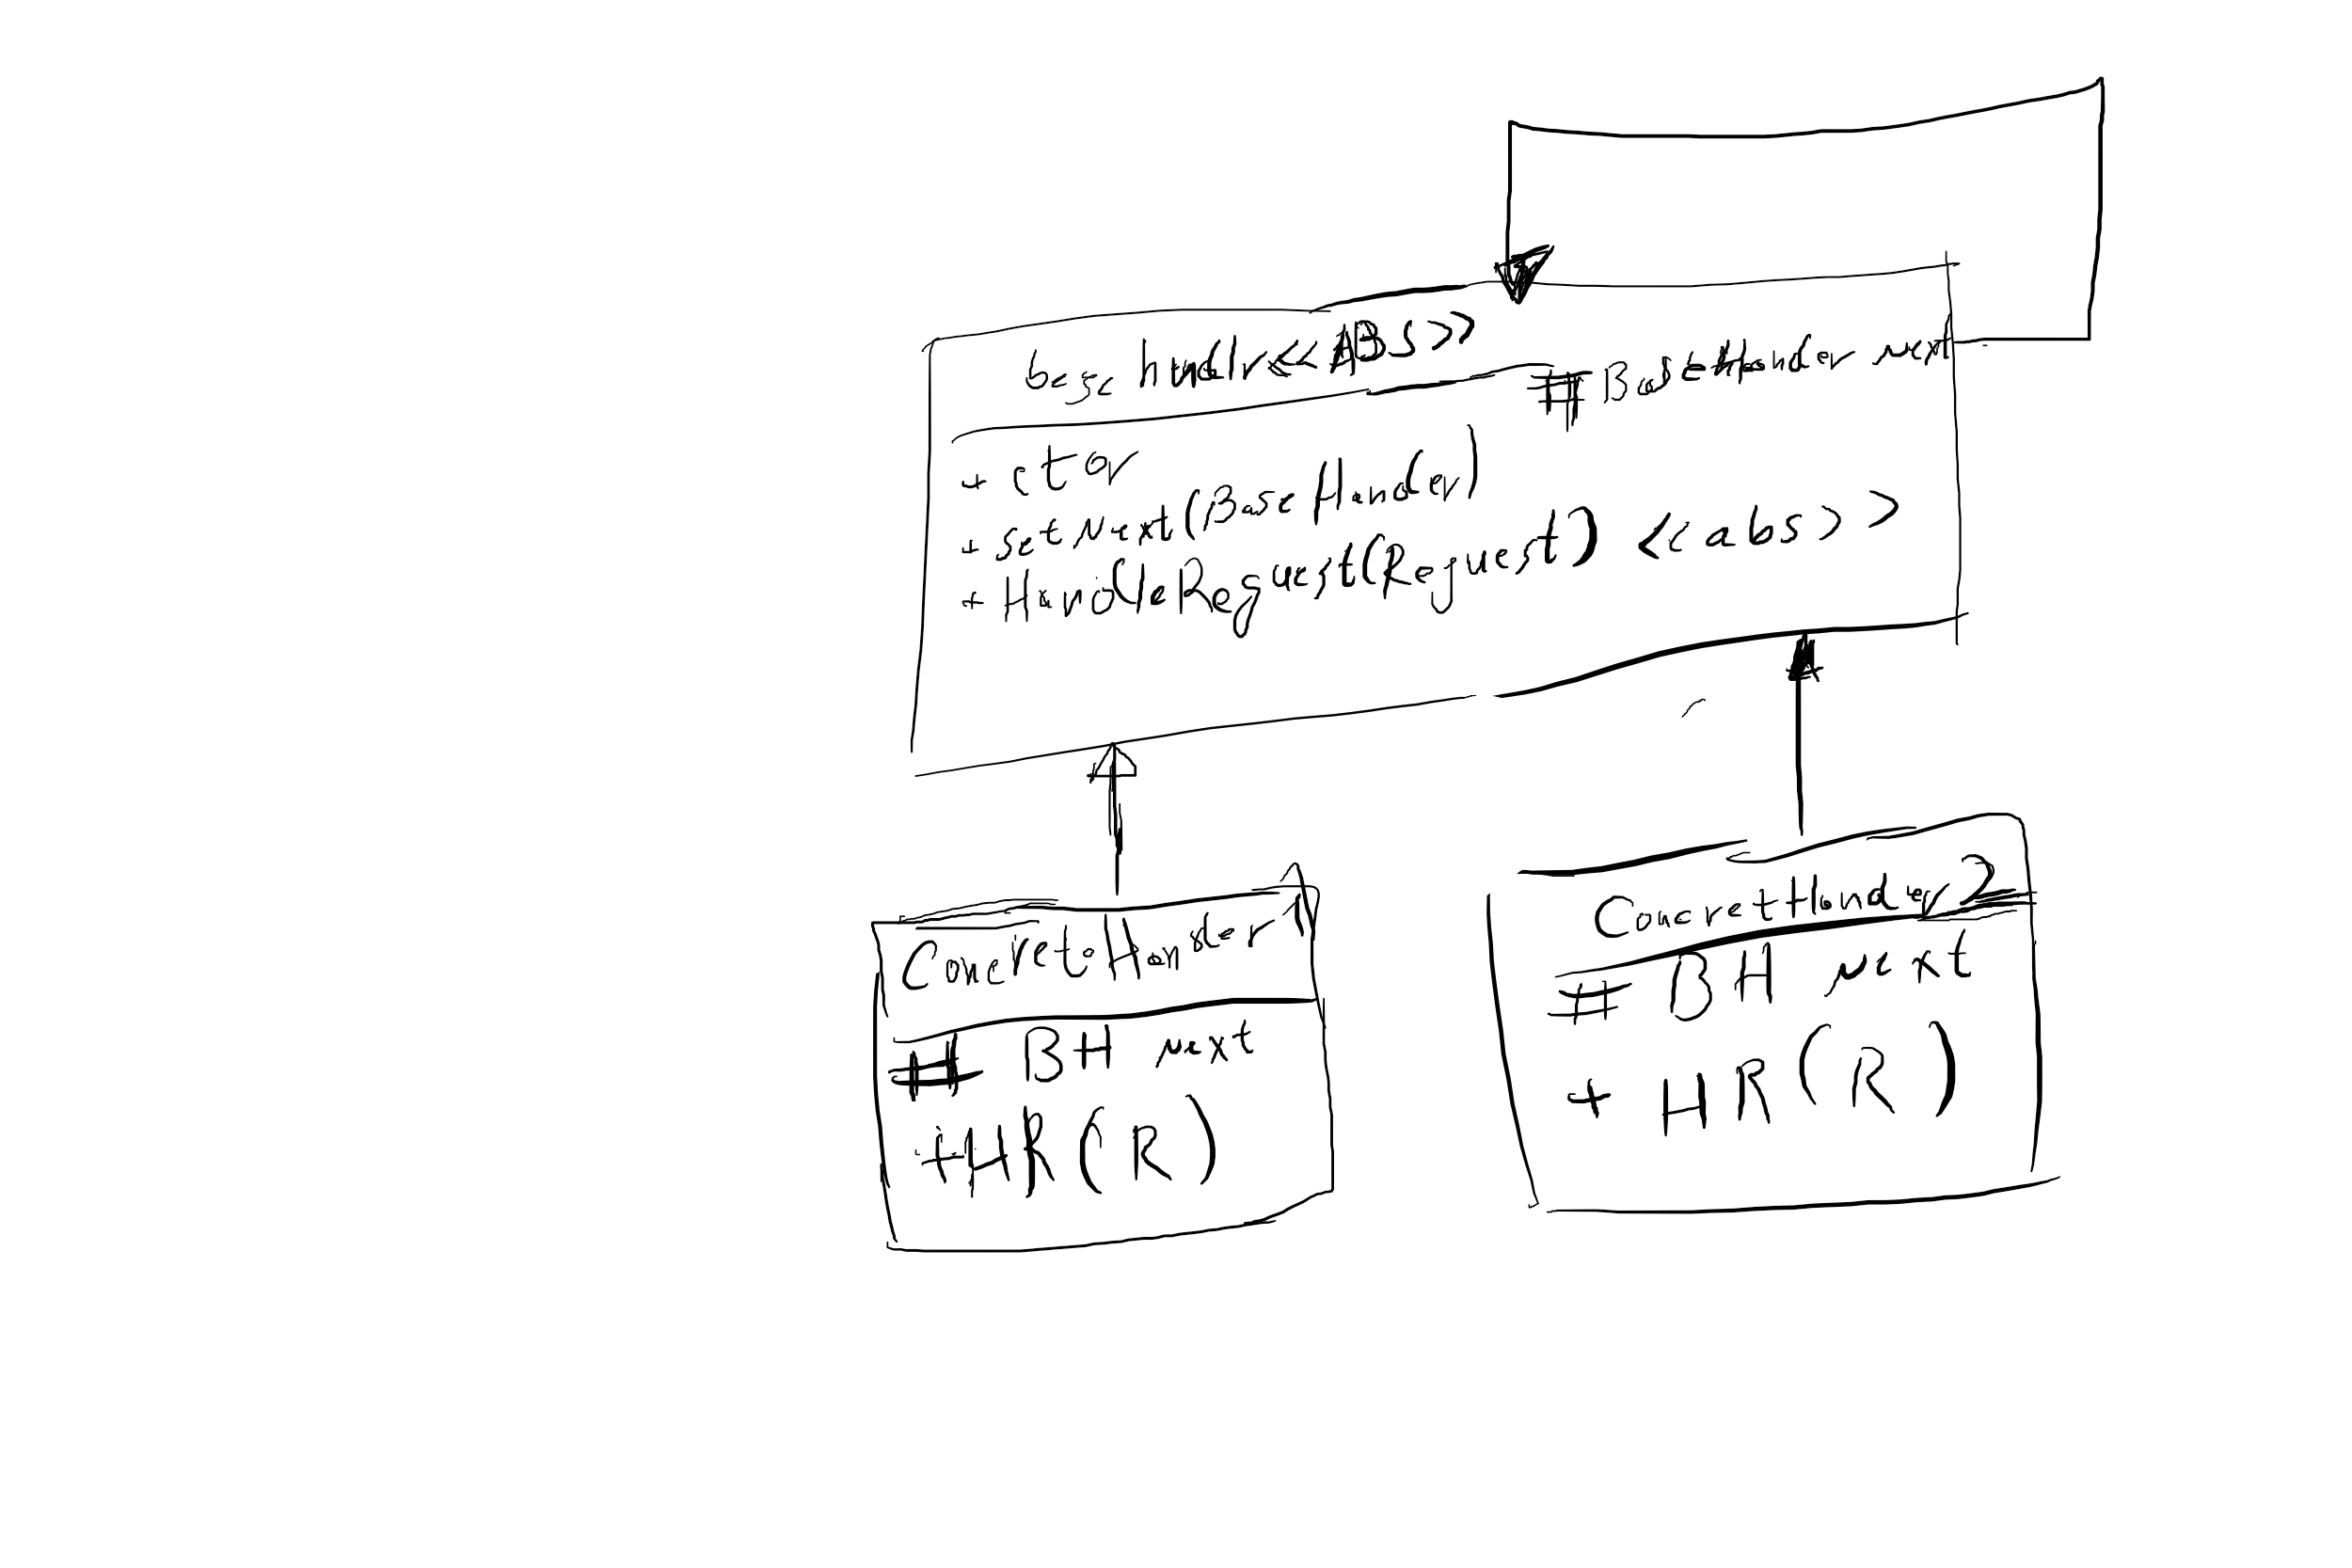 base handlr <<ABS>>
# BaseHander next
+ ctor
+ setNext(BaseHander)
+ HandleRequest(Request) <<abs>>
ConcreteHander 1
# BH next
+HR(R)
ConcretHander 2
# BH next
+ HR(R)